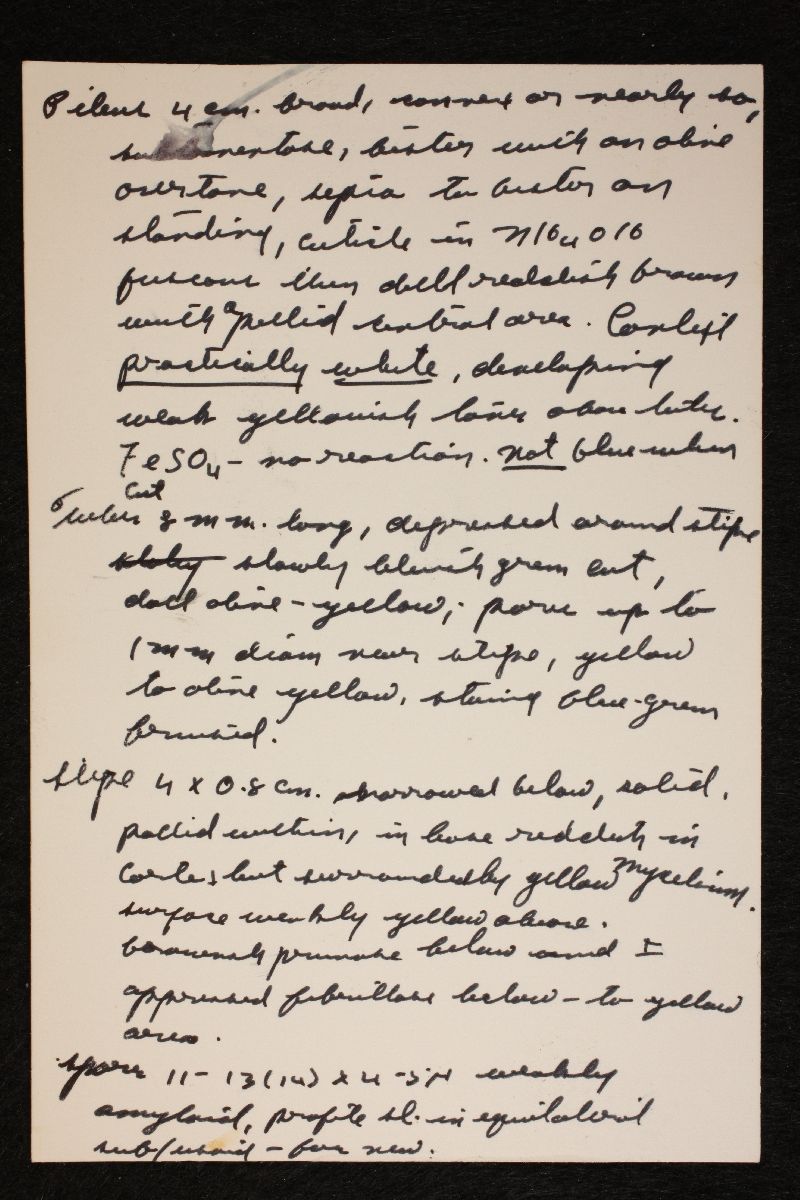 Pileus 4 cm. broad, convex or nearly so,
subtomentose, bister with an olive
overtone, sepia to bister on
standing, cuticle in NH4OH
fuscous then dull reddish brown
with a pallid central area. Context
practically white, developing
weak yellowish tones above tubes.
FeSO4 - no reaction. not blue when
cut
Tubes 8 mm. long, depressed around stipe
slowly bluish green cut,
dull olive-yellow; pores up to
1 mm diam near stipe, yellow
to olive yellow, staining blue-green
bruised.
Stipe 4 x 0.8 cm. narrowed below, solid,
pallid within, in base reddish in
cortex but surrounded by yellow mycelium.
surface weakly yellow above.
brownish pruinose below and ±
appressed fibrillose below - to yellow
area.
Spores 11-13(14) x 4-5µ weakly
amyloid, profile sl. inequilateral
subfusoid - face view.